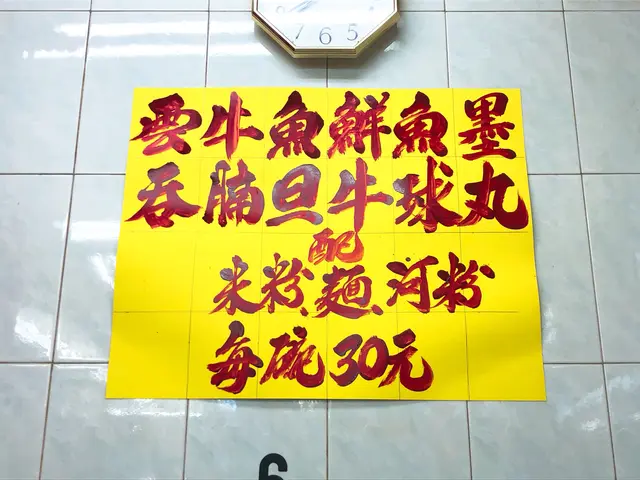 7 6 5
雲牛魚鮮魚墨
吞腩旦牛球丸
配
米粉、麵、河粉
每碗30元
6